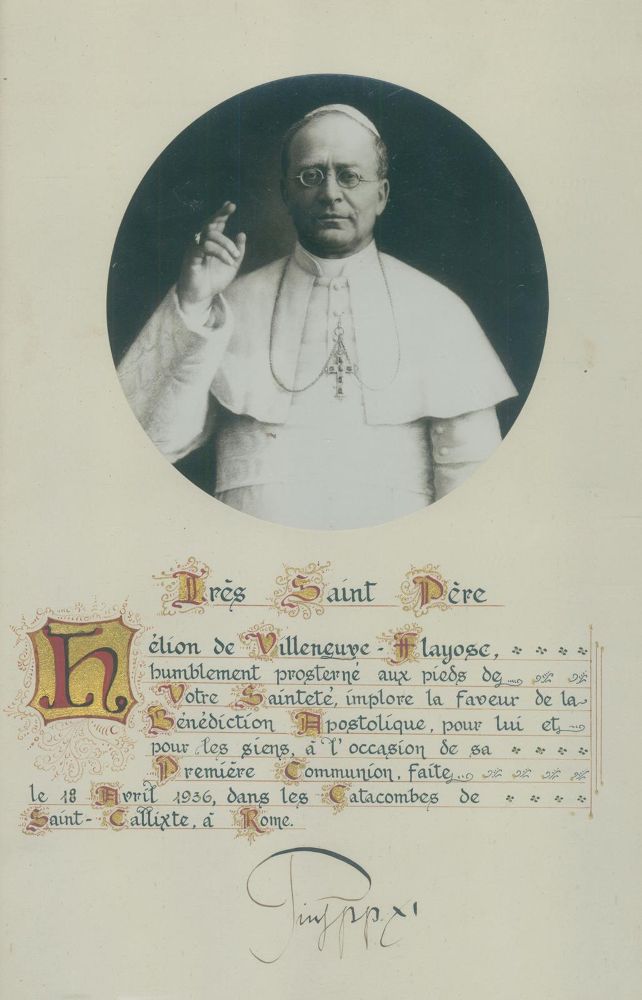 Très Saint Père
Hélion de Villeneuve-Flayosc,
humblement prosterné aux pieds de
Votre Sainteté, implore la faveur de la
Bénédiction Apostolique, pour lui et
pour les siens, à l'occasion de sa
Première Communion, faite
le 18 Avril 1936, dans les Catacombes de
Saint-Callixte, à Rome.
Pius pp. XI